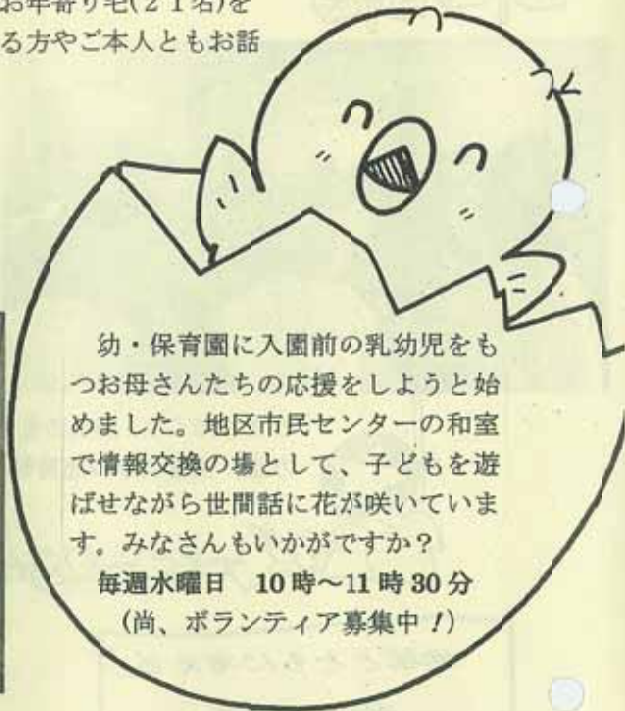 お年寄り宅(21名)を
る方やご本人ともお話
幼・保育園に入園前の乳幼児をも
つお母さんたちの応援をしようと始
めました。地区市民センターの和室
で情報交換の場として、子どもを遊
ばせながら世間話に花が咲いていま
す。みなさんもいかがですか？
毎週水曜日　10時～11時30分
(尚、ボランティア募集中！)